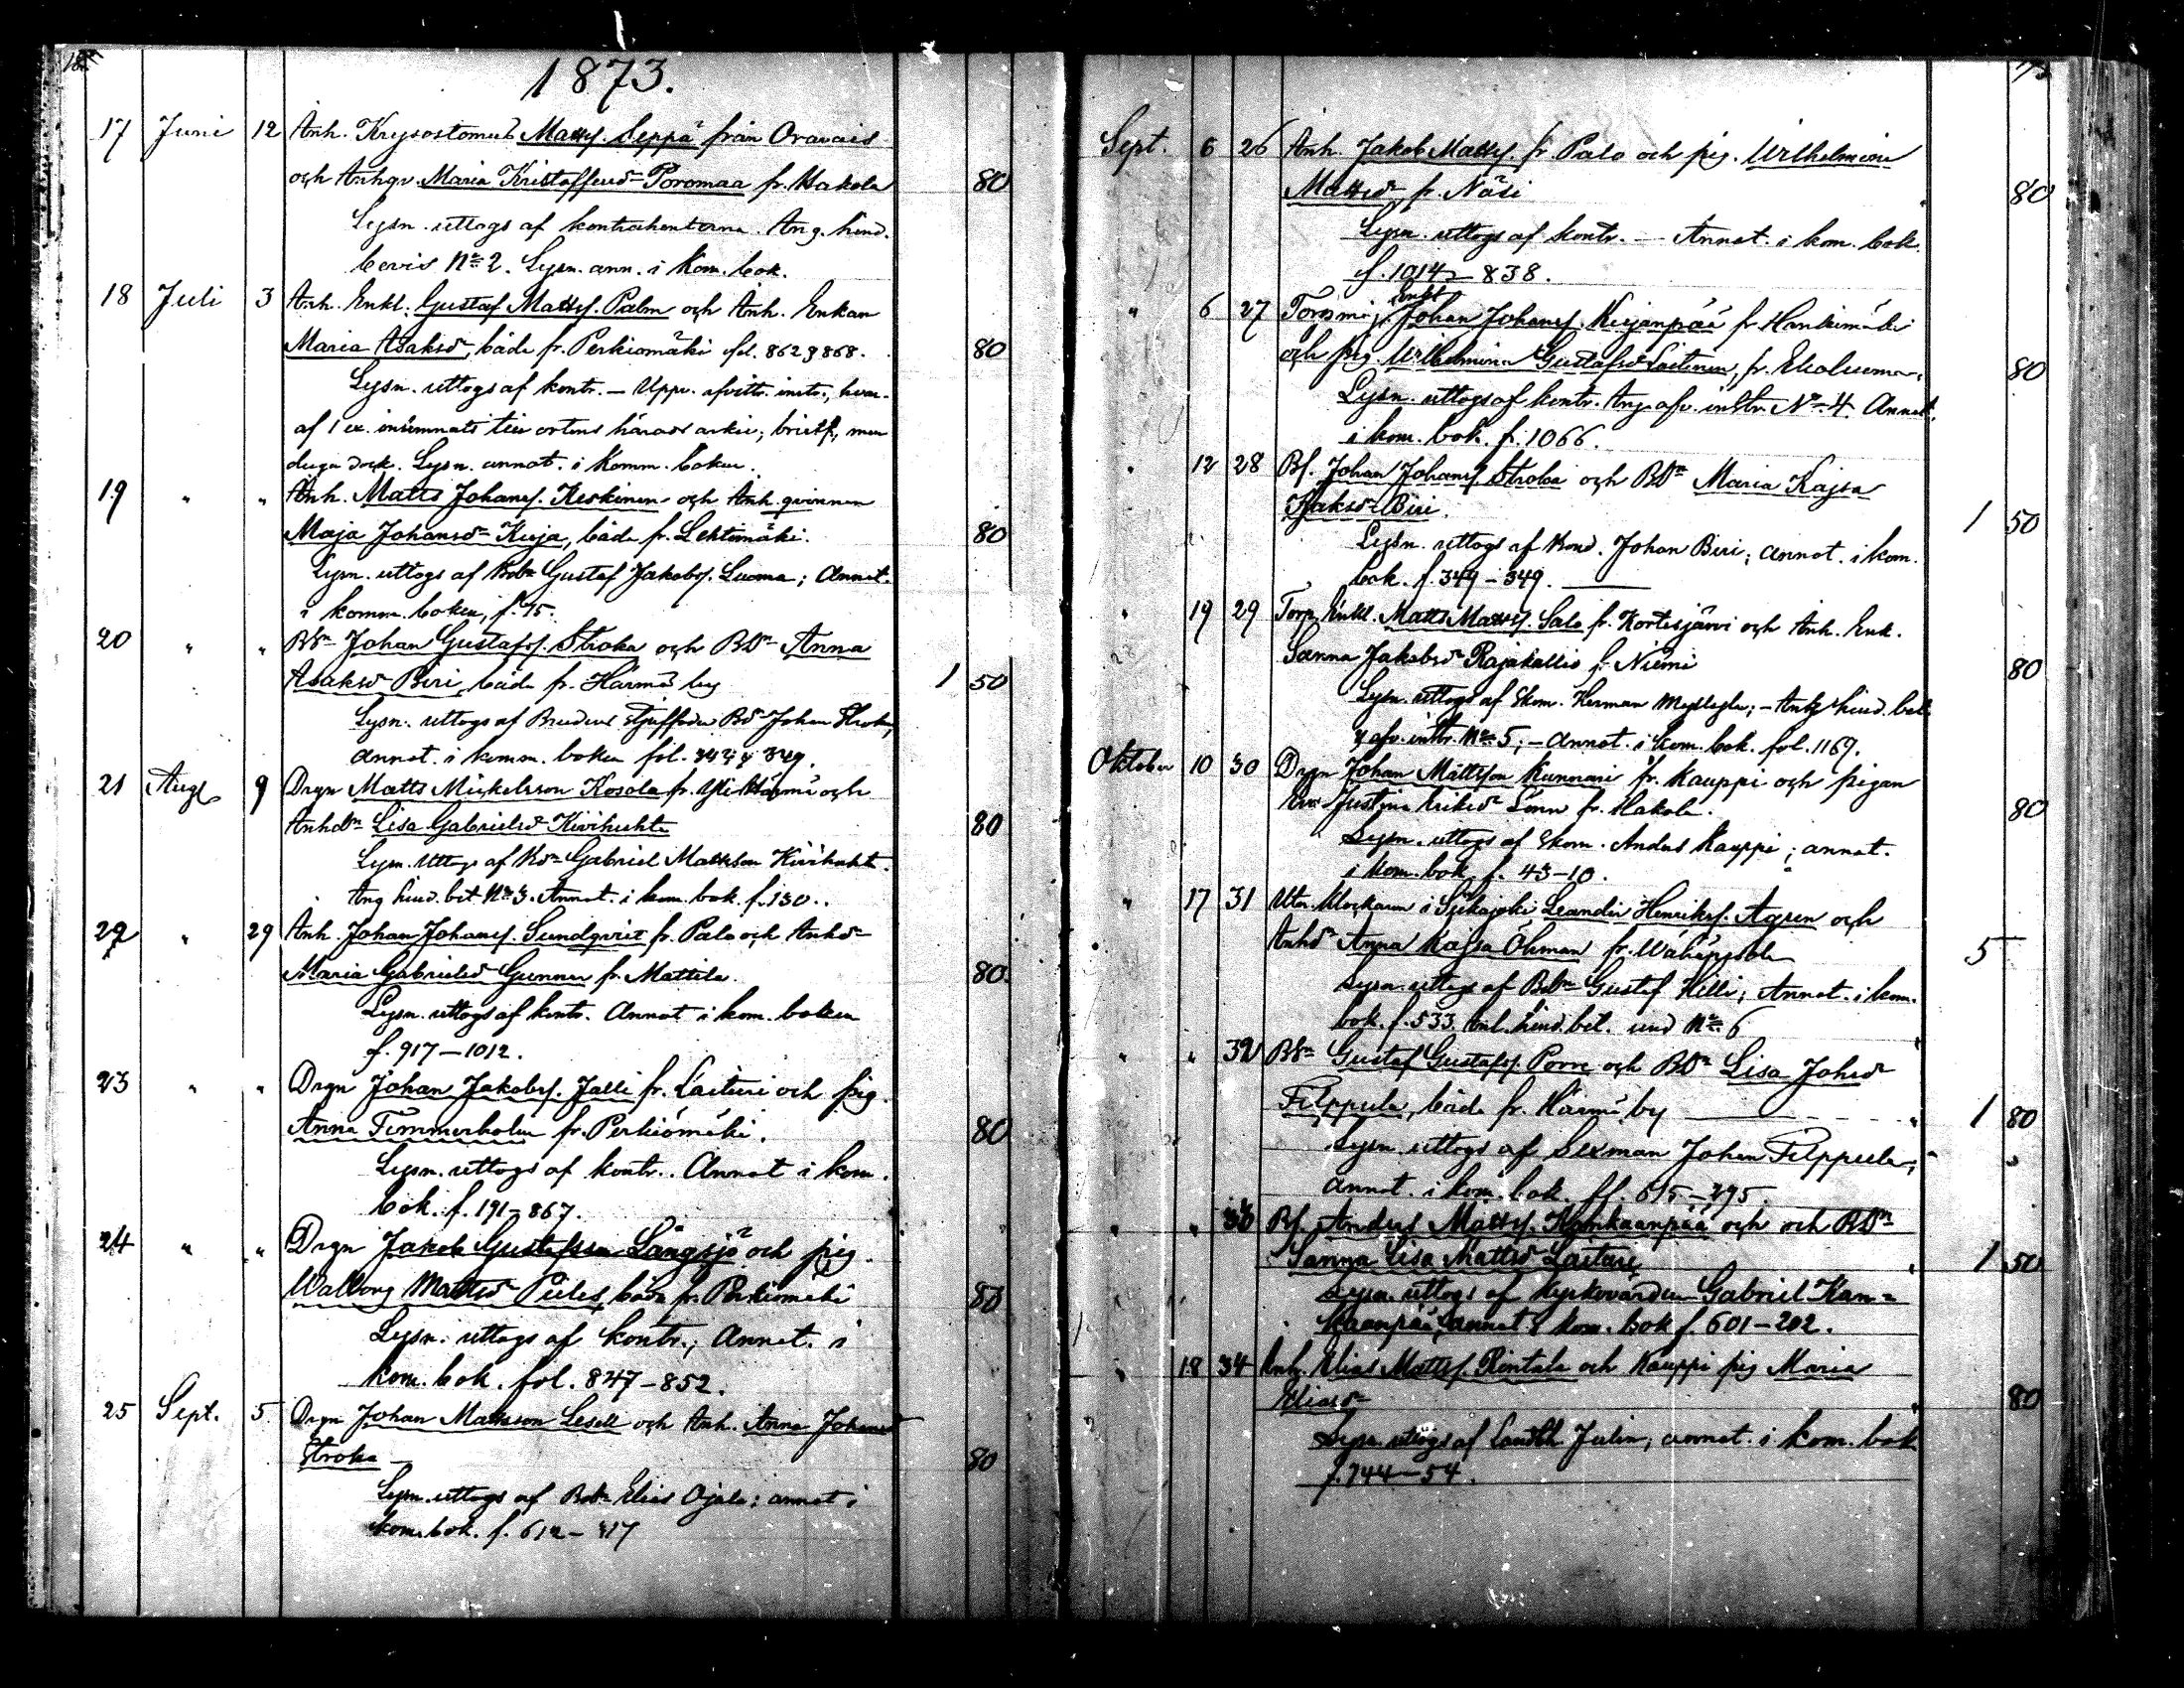 1873.
17 Juni 12 Anh. Krysostomus Mattsf. Seppä från Oravais
och Anhqv. Maria Kristoffersdr Poromaa fr. Hakola 80
Lysn. uttogs af kontrahenterna. Ang. hind.
bevis No 2. Lysn. ann. i Kom. bok.
18 Juli 3 Anh. Enkl. Gustaf Mattsf. Palm och Anh. Enkan
Maria Isaksdr, båda fr. Perkiomäki fol. 862 & 868. 80
Lysn. uttogs af kontr. — Uppv. afvittr. instr., hvar-
af 1 ex. inlemnats till ortens härads arkiv;
Lysn. annot. i Komm. boken.
19 " " Anh. Matts Johansf. Keskinen och Anh. qvinnan
Maja Johansdr Kuja, båda fr. Lehtimäki. 80
Lysn. uttogs af Bobn Gustaf Jakobsf. Luoma; Annot.
i komm. boken, f. 75.
20 " " BSn Johan Gustafsf. Stroka och BDn Anna
Isaksdr Biri, båda fr. Härmä by 1 50
Lysn. uttogs af Brudens Styffader Johan
annot. i komm. boken fol. 342 & 349.
21 Aug. 9 Drgn Matts Mickelsson Kosola fr. Yli Härmä och
Anhdn Lisa Gabrielsdr Kivihuhta 80
Lysn. uttogs af Gabriel Mattsson Kivihuhta.
Ang hind. bet. No 3. Annot. i kom. bok. f. 130.
22 " 29 Anh. Johan Johansf. Sundqvist fr. Palo och Anhdr
Maria Gabrielsdr Gunnar fr. Mattila. 80
Lysn. uttogs af kontr. Annot i kom. boken
f. 917—1012.
23 " " Drgn Johan Jakobsf. Jalli fr. Laituri och pig.
Anna Timmerholm fr. Perkiömäki. 80
Lysn. uttogs af kontr. Annot i kom.
bok. f. 191–867.
24 " " Drgn Jakob Gustafsson Långsjö och pig.
Walborg Mattsdr Piiles, båda fr. Perkiömäki 80
Lysn. uttogs af kontr.; Annot. i
kom. bok. fol. 847–852.
25 Sept. 5 Drgn Johan Mattsson Lesell och Anh. Anna Johansdr
Stroka 80
Lysn. uttogs af Bobn Elias Ojala; annot i
kom. bok. f. 612–
Sept. 6 26 Anh. Jakob Mattsf. fr. Palo och pig. Wilhelmina
Mattsdr fr. Näsi 80
Lysn. uttogs af kontr. — Annot. i kom. bok.
f. 1014–838.
Enkl
" 6 27 Johan Johansf. Kujanpää fr.
och pig. Wilhelmina Gustafsdr Laitinen, fr. Ekoluoma. 80
Lysn. uttogs af kontr. Ang. afv. instr. No 4 Annot.
i kom. bok. f. 1066.
" 12 28 Bf. Johan Johansf. Stroka och BDn Maria Kajsa
Isaksdr Biri. 1 50
Lysn. uttogs af Johan Biri; annot. i kom.
bok. f. 349–349.
" 19 29 Torp. Enkl. Matts Mattsf. Salo fr. Kortesjärvi och Anh. Enk.
Sanna Jakobsdr Rajakallio fr. Niemi 80
Lysn. uttogs af Herman — hind. bet.
& afv. instr. No 5; — annot. i kom. bok. fol. 1169.
Oktober 10 30 Drgn Johan Mattsson Kunnari fr. Kauppi och pigan
Eva Justina Eriksdr Lönn fr. Hakola. 80
Lysn. uttogs af Anders Kauppi; annot.
i kom. bok. f. 43–10.
" 17 31 Utn. Klockaren i Siikajoki Leander Henriksf. Agren och
Anhdn Anna Kajsa Öhman fr. 5
Lysn. uttogs af Bobn Gustaf Hilli; Annot. i kom.
bok. f. 533. hind. bet. und No 6
" " 32 BSn Gustaf Gustafsf. Porre och BDn Lisa Johsdr
Filppula, båda fr. Härmä by 1 80
Lysn. uttogs af Sexman Johan Filppula,
annot. i kom. bok. ff. 615–295.
" " 33 Bf. Anders Mattsf. Kankaanpää och och BDn
Sanna Lisa Mattsdr Laituri 1 50
Lysn. uttogs af Kyrkovärden Gabriel Kan-
kaanpää; annot i kom. bok f. 601–202.
" 18 34 Elias Mattsf. Rintala och Kauppi pig Maria
Eliasdr 80
Lysn. uttogs af Julin; annot. i kom. bok
f. 744–54.